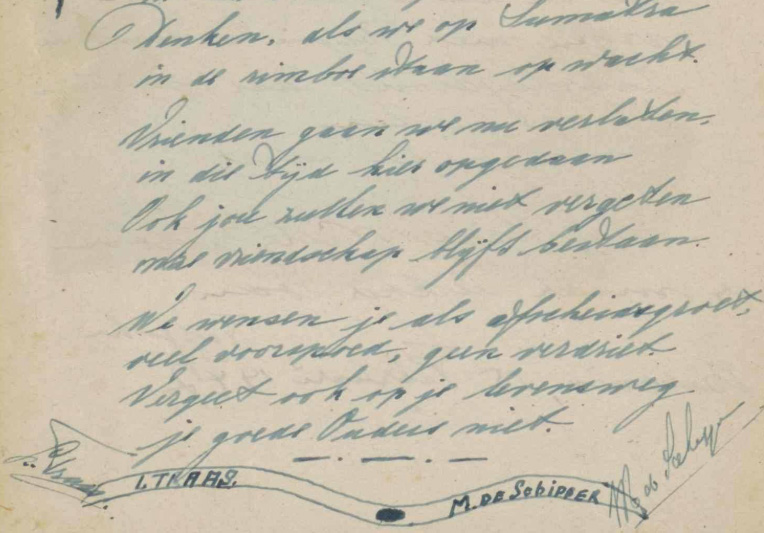 Denken, als we op Sumatra
in de rimboe staan op wacht.
Vrienden gaan we nu verlaten,
in die tijd hier opgedaan
Ook jou zullen we niet vergeten
onze vriendschap blijft bestaan.
We wensen je als afscheidsgroet,
veel voorspoed, geen verdriet.
Vergeet ook op je levensweg
je goede Ouders niet.
I. TRAAS.
M. DE SCHIPPER